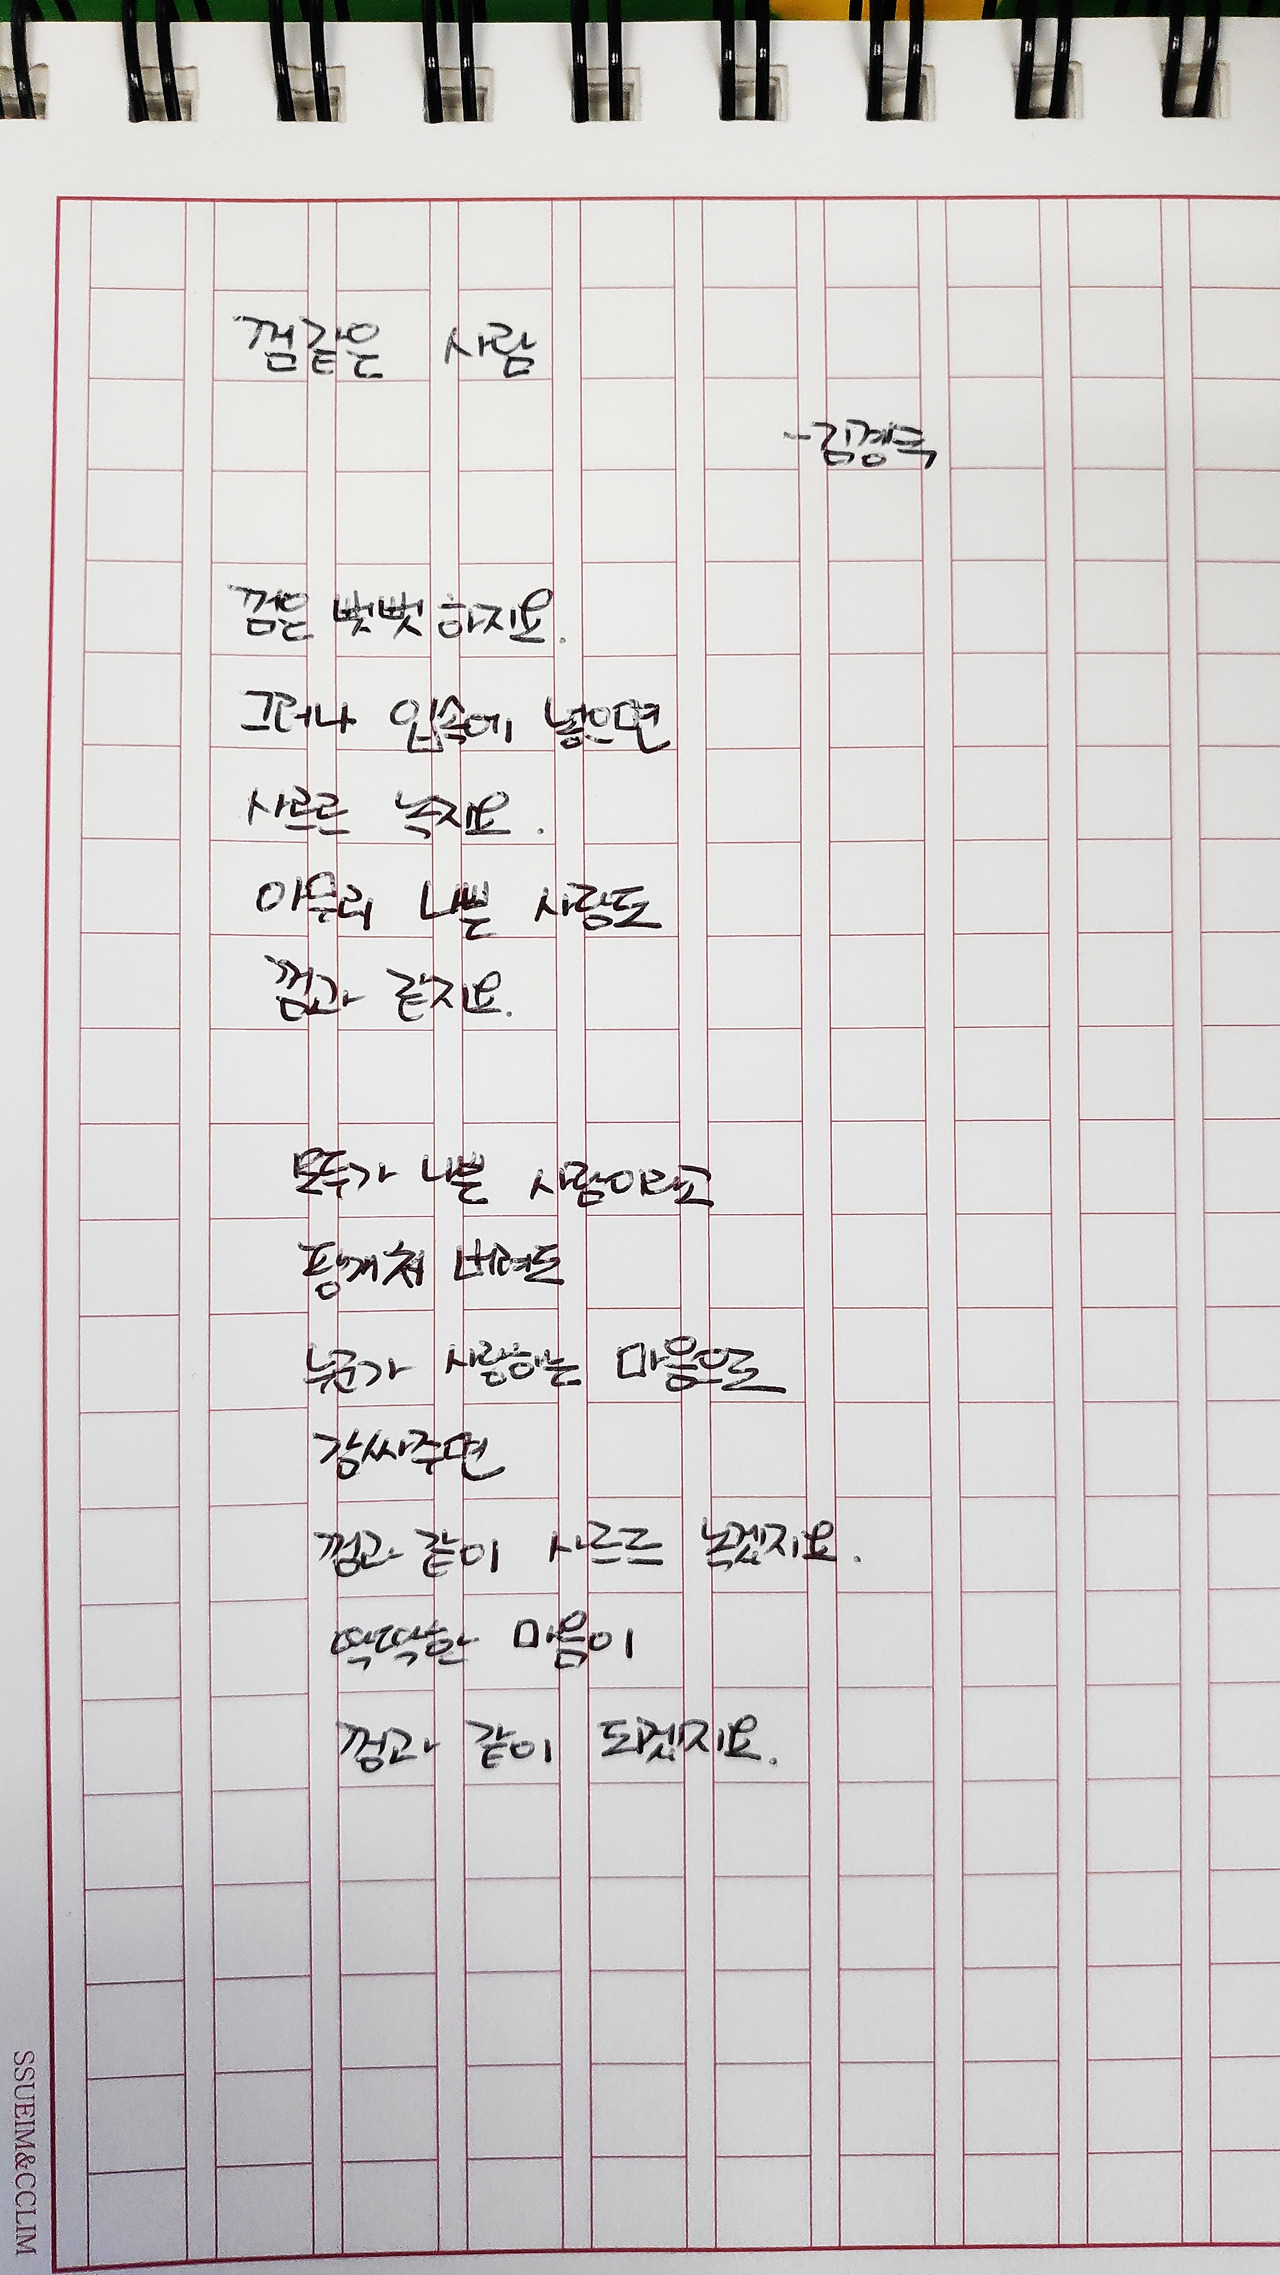 껌같은 사람
-김경득
껌은 뻣뻣하지요.
그러나 입속에 넣으면
사르르 녹지요.
아무리 나쁜 사람도
껌과 같지요.
모두가 나쁜 사람이라고
팽개쳐 버려도
누군가 사랑하는 마음으로
감싸주면
껌과 같이 사르르 녹겠지요.
딱딱한 마음이
껌과 같이 되겠지요.
SSUEIM&CCLIM